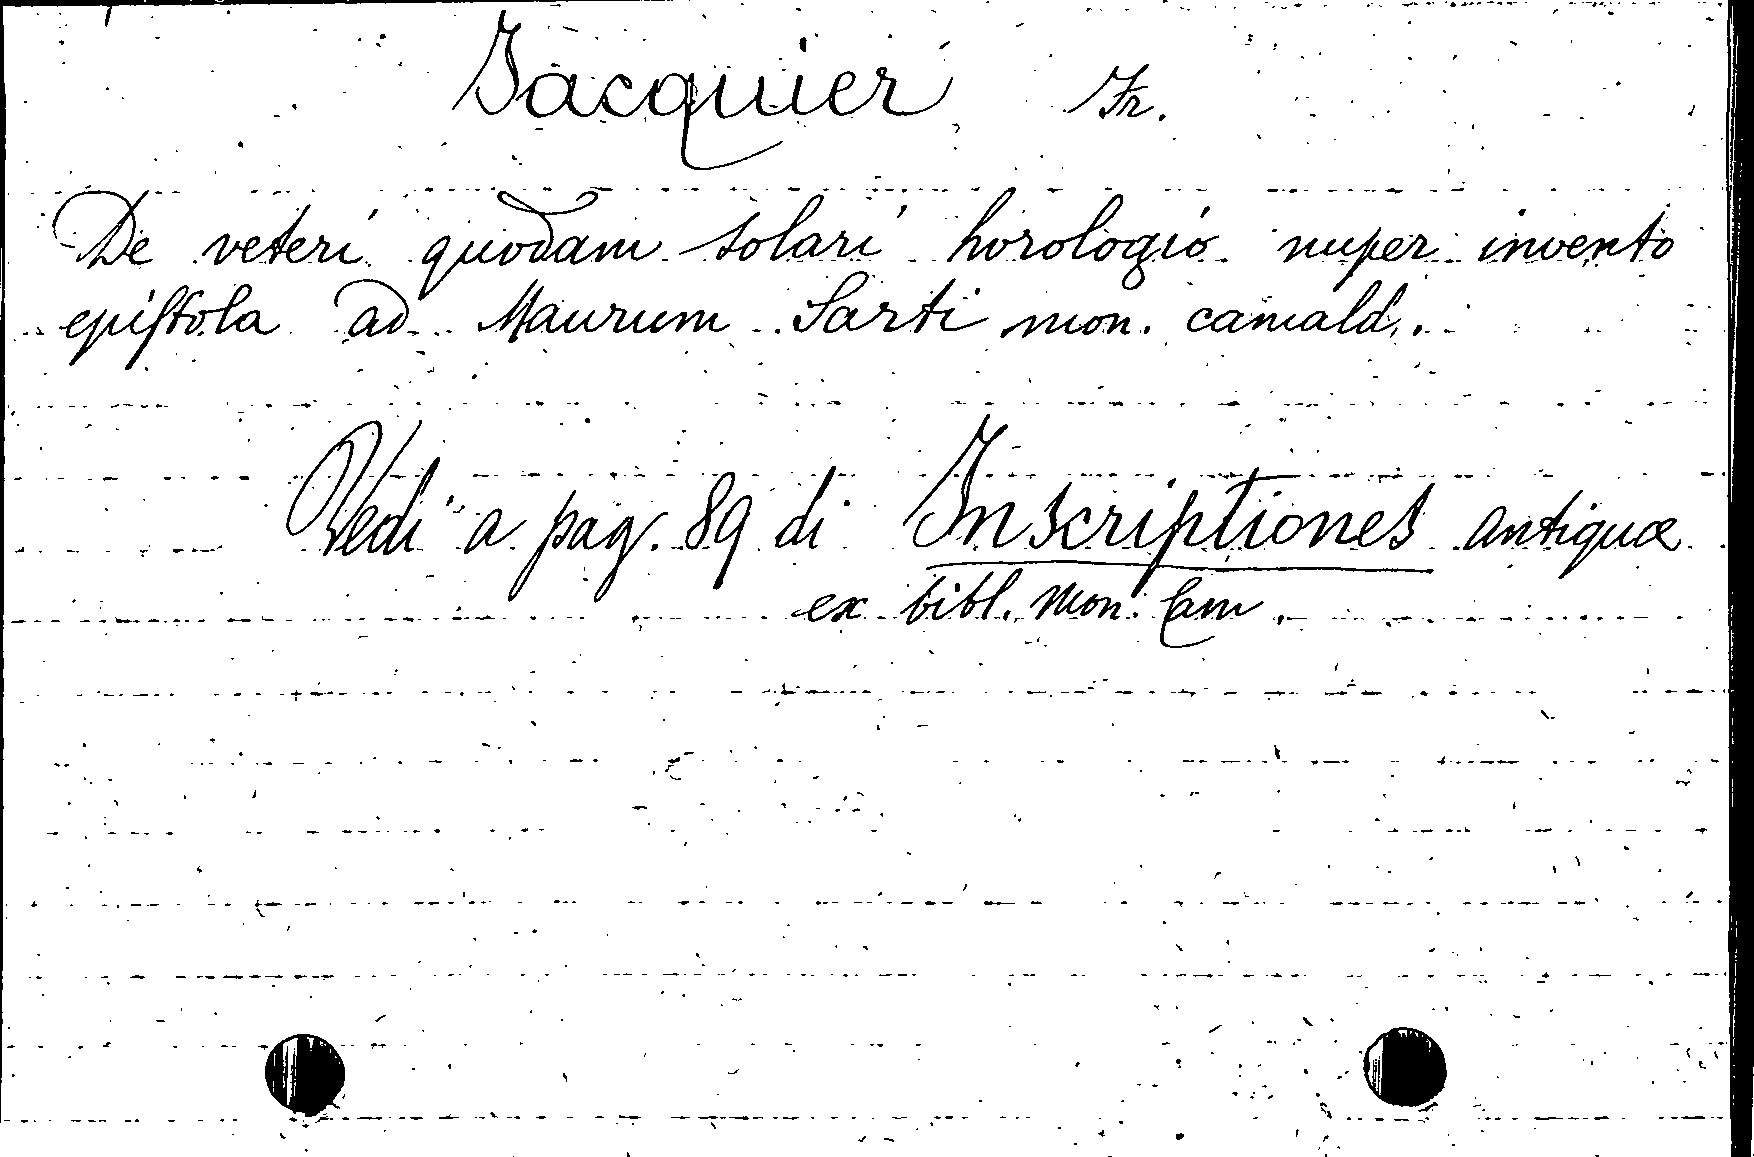 Jacquier Fr.
De veteri quodam solari horologio nuper invento
epistola ad Maurum Sarti mon. camald.
Vedi a pag. 89 di Inscriptiones antiquæ
ex bibl. mon. Cam.